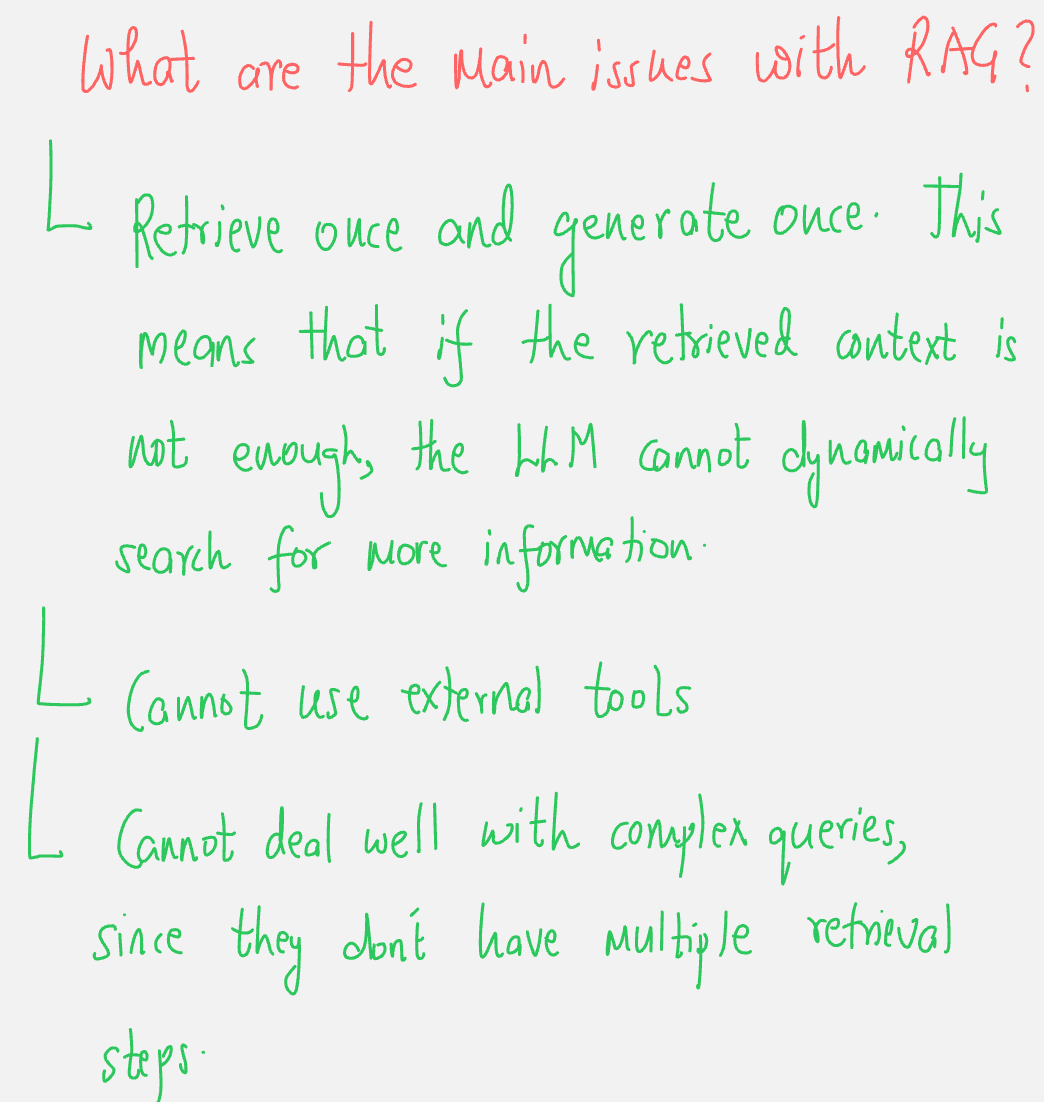 What are the main issues with RAG?
Retrieve once and generate once. This
means that if the retrieved context is
not enough, the LLM cannot dynamically
search for more information.
Cannot use external tools
Cannot deal well with complex queries,
since they don't have multiple retrieval
steps.